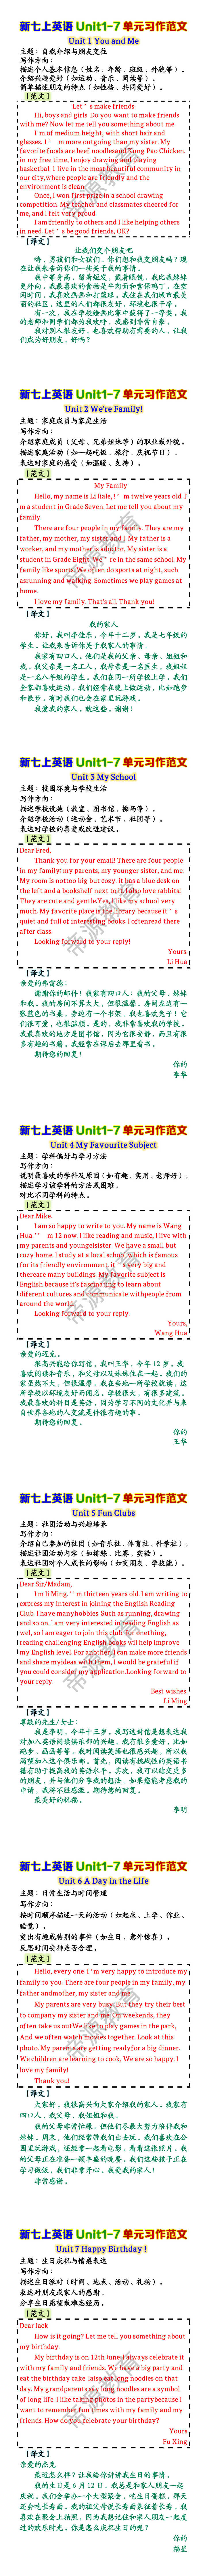 新七上英语 Unit1-7 单元习作范文
Unit 1 You and Me
主题：自我介绍与朋友交往
写作方向：
描述个人基本信息（姓名、年龄、班级、外貌等）。
介绍兴趣爱好（如运动、音乐、阅读等）。
简单描述朋友的特点（如性格、共同爱好）。
【范文】
Let＇s make friends
Hi, boys and girls. Do you want to make friends
with me? Now let me tell you something about me.
I'm of medium height, with short hair and
glasses. I＇m more outgoing than my sister. My
favorite foods are beef noodles and Kung Pao Chicken.
in my free time, I enjoy drawing and playing
basketbal. I live in the most beautiful community in
our city,where people are friendly and the
environment is clean.
Once, I won first prize in a school drawing
competition. My teacher and classmates cheered for
me, and I felt very proud.
I am friendly to others and I like helping others
in need. Let＇s be good friends, OK?
【译文】
让我们交个朋友吧
嗨，男孩们和女孩们。你们想和我交朋友吗？现
在让我来告诉你们一些关于我的事情。
我中等身高，留着短发，戴着眼镜。我比我妹妹
更外向。我最喜欢的食物是牛肉面和宫保鸡丁。在空
闲时间，我喜欢画画和打篮球。我住在我们城市最美
丽的社区，这里的人们都很友好，环境也很干净。
有一次，我在学校绘画比赛中获得了一等奖。我
的老师和同学们都为我欢呼，我感到非常自豪。
我对别人很友好，也喜欢帮助有需要的人。让我
们成为好朋友，好吗？
新七上英语 Unit1-7 单元习作范文
Unit 2 We're Family!
主题：家庭成员与家庭生活
写作方向：
介绍家庭成员（父母、兄弟姐妹等）的职业或外貌。
描述家庭活动（如一起吃饭、旅行、庆祝节日）。
表达对家庭的感受（如温暖、支持）。
【范文】
My Family
Hello, my name is Li Jiale, I＇m twelve years old. I'
m a student in Grade Seven. Let me tell you about my
family.
There are four people in my family. They are my
father, my mother, my sister and I. My father is a
worker, and my mother is a doctor, My sister is a
student in Grade Eight. We＇re in the same school. My
family like sports. We often do sports at night, such
asrunning and walking. Sometimes we play games at
home.
I love my family. That's all. Thank you!
【译文】
我的家人
你好，我叫李佳乐，今年十二岁。我是七年级的
学生。让我来告诉你关于我家人的事情。
我家有四口人。他们是我的父亲、母亲、姐姐和
我。我父亲是一名工人，我母亲是一名医生，我姐姐
是一名八年级的学生。我们在同一所学校上学。我们
全家都喜欢运动。我们经常在晚上做运动，比如跑步
和散步。有时我们也会在家里玩游戏。
我爱我的家人。就这些。谢谢！
新七上英语 Unit1-7 单元习作范文
Unit 3 My School
主题：校园环境与学校生活
写作方向：
描述学校设施（教室、图书馆、操场等）。
介绍学校活动（运动会、艺术节、社团等）。
表达对学校的喜爱或改进建议。
【范文】
Dear Fred,
Thank you for your email! There are four people
in my family: my parents, my younger sister, and me.
My room is nottoo big but cozy. it has a blue desk on
the left and a bookshelf next to it.I also love rabbits!
They are cute and gentle.Yes, I like my school very
much. My favorite place is the library because it＇s
quiet and full of interesting books. I oftenread there
after class.
Looking forward to your reply!
Yours.
Li Hua
【译文】
亲爱的弗雷德：
谢谢你的邮件！我家有四口人：我的父母、妹妹
和我。我的房间不算太大，但很温馨。房间左边有一
张蓝色的书桌，旁边有一个书架。我也喜欢兔子！它
们很可爱，也很温顺。是的，我非常喜欢我的学校。
我最喜欢的地方是图书馆，因为它很安静，而且有很
多有趣的书籍。我经常在课后去那里看书。
期待您的回复！
你的
李华
新七上英语 Unit1-7 单元习作范文
Unit 4 My Favourite Subject
主题：学科偏好与学习方法
写作方向：
说明最喜欢的学科及原因（如有趣、实用、老师好）。
描述学习该学科的方法或困难。
对比不同学科的特点。
【范文】
Dear Mike.
I am so happy to write to you. My name is Wang
Hua.＇＇m 12 now. I like reading and music, I live with
my parents and youngelsister. We have a small but
cozy home. I study at a local school which is famous
for its friendly environment. It＇s very big and
thereare many buildings. My favorite subject is
English because it's fascinating to learn about
diferent cultures and communicate withpeople from
around the world.
Looking forward to your reply.
Yours,
Wang Hua
【译文】
亲爱的迈克，
很高兴能给你写信。我叫王华，今年 12 岁。我
喜欢阅读和音乐，和父母以及妹妹住在一起。我们的
家虽然不大，但很温馨。我在当地一所学校就读，这
所学校以环境友好而闻名。学校很大，有很多建筑。
我最喜欢的科目是英语，因为学习不同的文化并与来
自世界各地的人交流是件很有趣的事。
期待您的回复。
你的
王华
新七上英语 Unit1-7 单元习作范文
Unit 5 Fun Clubs
主题：社团活动与兴趣培养
写作方向：
介绍自己参加的社团（如音乐社、体育社、科学社）。
描述社团活动内容（如排练、比赛、实验）。
表达社团对个人成长的影响（如交朋友、学技能）。
【范文】
Dear Sir/Madam,
I'm li Ming.＇＇m thirteen years old. I am writing to
express my interest in joining the English Reading
Club. I have manyhobbies. Such as running, drawing
and so on. I am very interested in reading English as
wel, so l am eager to join this club. For onething,
reading challenging English books will help improve
my English level. For another,I can make more friends
and share myideas with them, I would be grateful if
you could consider my application.Looking forward to
your reply.
Best wishes.
Li Ming
【译文】
尊敬的先生/女士：
我是李明，今年十三岁，我写这封信是想表达我
对加入英语阅读俱乐部的兴趣。我有很多爱好，比如
跑步、画画等等。我对阅读英语也很感兴趣，所以我
渴望加入这个俱乐部。首先，阅读有挑战性的英语书
籍有助于提高我的英语水平。其次，我可以结交更多
的朋友，并与他们分享我的想法。如果您能考虑我的
申请，我将不胜感激。期待您的回复。
最美好的祝福。
李明
新七上英语 Unit1-7 单元习作范文
Unit 6 A Day in the Life
主题：日常生活与时间管理
写作方向：
按时间顺序描述一天的活动（如起床、上学、作业、
睡觉）。
突出有趣或特别的事件（如生日、意外惊喜）。
反思时间安排是否合理。
【范文】
Hello, every one. I＇m very happy to introduce my
family to you. There are four people in my family, my
father andmother, my sister and me.
My parents are very busy, But they try their best
to company my sister and me. On weekends, they
often take us outWe like to play games in the park,
And we often watch movies together. Look at this
photo. My parents are getting readyfor a big dinner.
We children are learning to cook, We are so happy. I
love my family!
Thank you!
【译文】
大家好，我很高兴向大家介绍我的家人。我家有
四口人，我父母，我姐姐和我。
我的父母非常忙碌，但他们尽最大努力陪伴我和
妹妹。周末，他们经常带我们出去玩。我们喜欢在公
园里玩游戏，还经常一起看电影。看看这张照片。我
的父母正在准备一顿丰盛的晚餐，我们这些孩子正在
学习做饭，我们非常开心。我爱我的家人！
非常感谢。
新七上英语 Unit1-7 单元习作范文
Unit 7 Happy Birthday !
主题：生日庆祝与情感表达
写作方向：
描述生日派对（时间、地点、活动、礼物）。
表达对朋友或家人的感谢。
分享生日愿望或难忘经历。
【范文】
Dear Jack
How is it going? Let me tell you something about
my birthday.
My birthday is on 12th lune.I always celebrate it
with my family and friends. We have a big party and
eat the birthday cake. lalso eat long noodles on that
day. My grandparents say long noodles are a symbol
of long life. I like taking photos in the partybecause I
want to remember fun times with my family and my
friends. How do you celebrate your birthday?
Yours
Fu Xing
【译文】
亲爱的杰克
最近怎么样？让我给你讲讲我生日的事情。
我的生日是 6 月 12 日。我总是和家人朋友一起
庆祝。我们会举办一个大型聚会，吃生日蛋糕。那天
还会吃长寿面。我的祖父母说长寿面象征着长寿。我
喜欢在聚会上拍照，因为我想记住和家人朋友一起度
过的欢乐时光。你是怎么庆祝生日的呢？
你的
福星
帝源教育